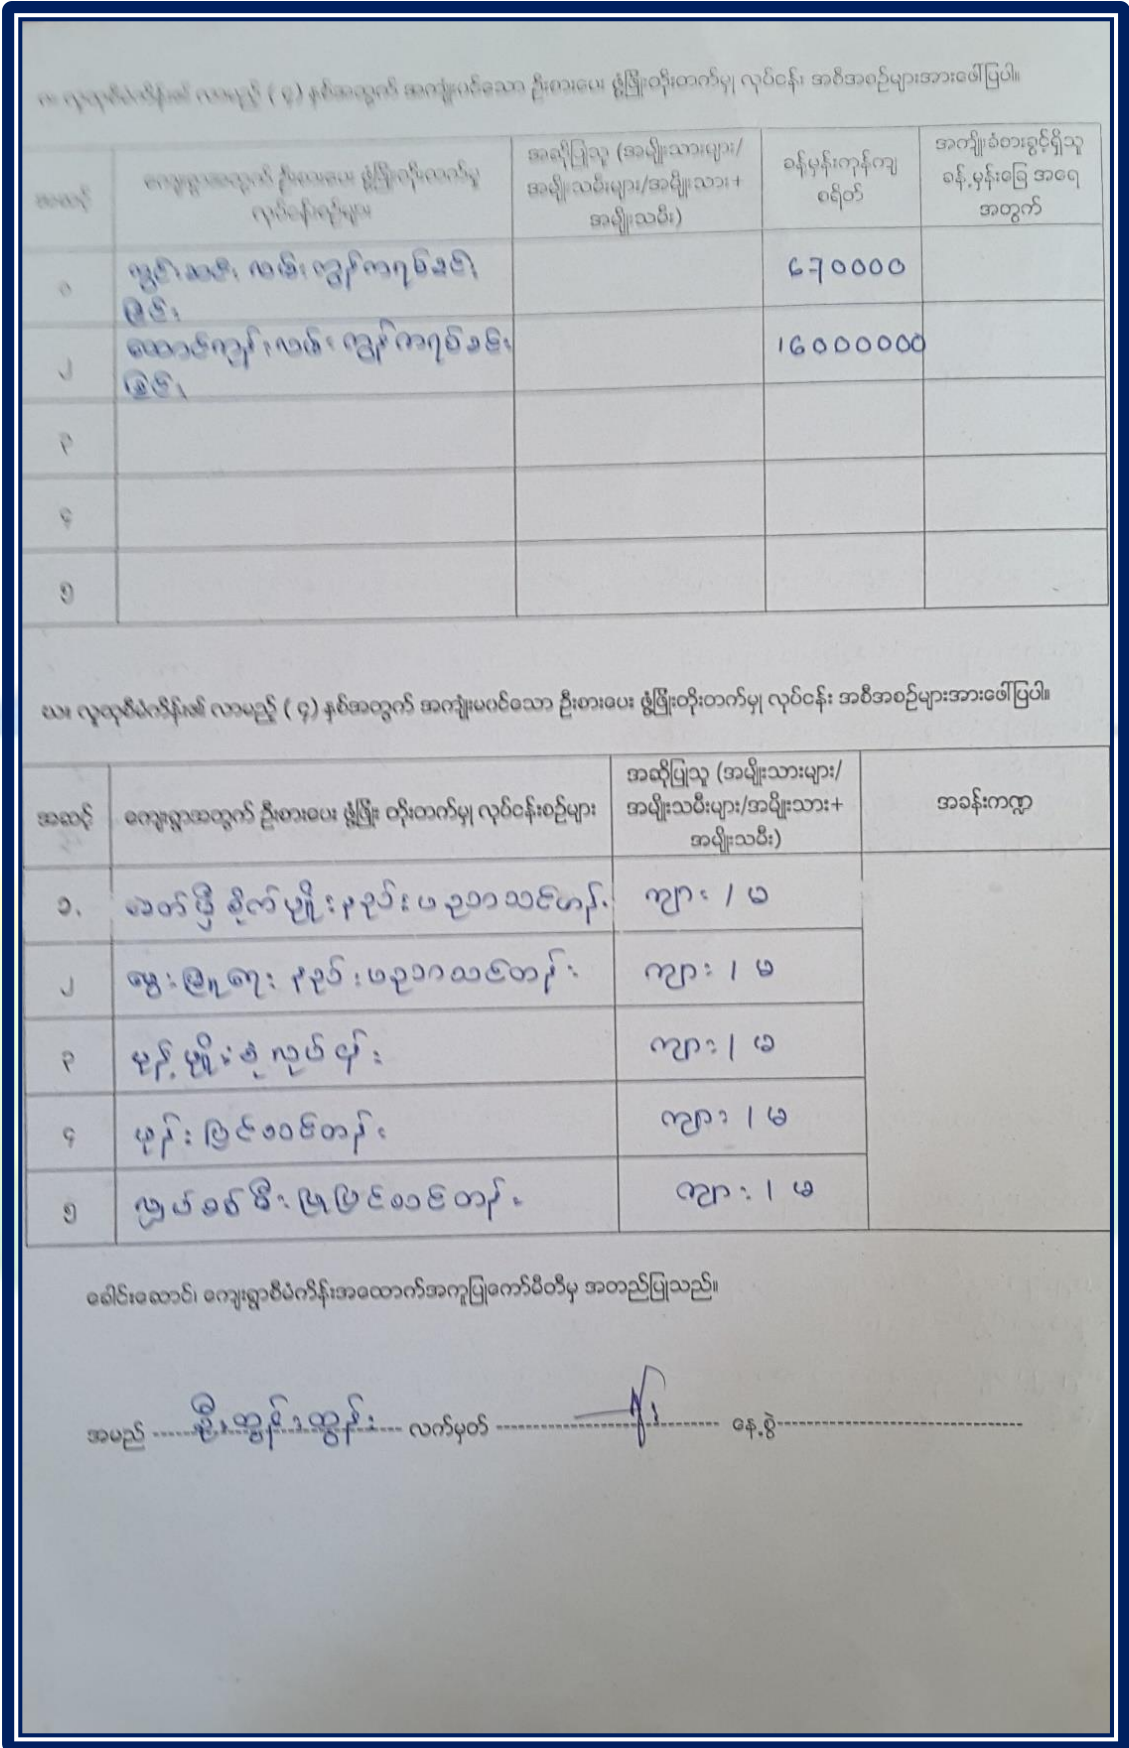 ဂ။ လူထုစီမံကိန်း၏ လာမည့် ( ၄) နှစ်အတွက် အကျုံးဝင်သော ဦးစားပေး ဖွံ့ဖြိုးတိုးတက်မှု လုပ်ငန်း အစီအစဉ်များအားဖေါ်ပြပါ။
အဆင့်
ကျေးရွာအတွက် ဦးစားပေး ဖွံ့ဖြိုးတိုးတက်မှု
လုပ်ငန်းစဉ်များ
အဆိုပြုသူ (အမျိုးသားများ/
အမျိုးသမီးများ/အမျိုးသား+
အမျိုးသမီး)
ခန့်မှန်းကုန်ကျ
စရိတ်
အကျိုးခံစားခွင့်ရှိသူ
ခန့်မှန်းခြေ အရေ
အတွက်
၁
လမ်း ကွန်ကရစ်ခင်း
ခြင်း
670000
၂
လမ်း ကွန်ကရစ်ခင်း
ခြင်း
16000000
၃
၄
၅
ဃ။ လူထုစီမံကိန်း၏ လာမည့် ( ၄) နှစ်အတွက် အကျုံးမဝင်သော ဦးစားပေး ဖွံ့ဖြိုးတိုးတက်မှု လုပ်ငန်း အစီအစဉ်များအားဖေါ်ပြပါ။
အဆင့်
ကျေးရွာအတွက် ဦးစားပေး ဖွံ့ဖြိုး တိုးတက်မှု လုပ်ငန်းစဉ်များ
အဆိုပြုသူ (အမျိုးသားများ/
အမျိုးသမီးများ/အမျိုးသား+
အမျိုးသမီး)
အခန်းကဏ္ဍ
၁.
ခေတ်မှီ စိုက်ပျိုးနည်းပညာသင်တန်း
ကျား / မ
၂
မွေးမြူရေး နည်းပညာသင်တန်း
ကျား / မ
၃
မုန့်မျိုးစုံလုပ်ငန်း
ကျား / မ
၄
ဖုန်းပြင်သင်တန်း
ကျား / မ
၅
လျှပ်စစ်မီးပြုပြင်သင်တန်း
ကျား / မ
ခေါင်းဆောင်၊ ကျေးရွာစီမံကိန်းအထောက်အကူပြုကော်မီတီမှ အတည်ပြုသည်။
အမည် ဦးထွန်းထွန်း လက်မှတ် နေ့စွဲ